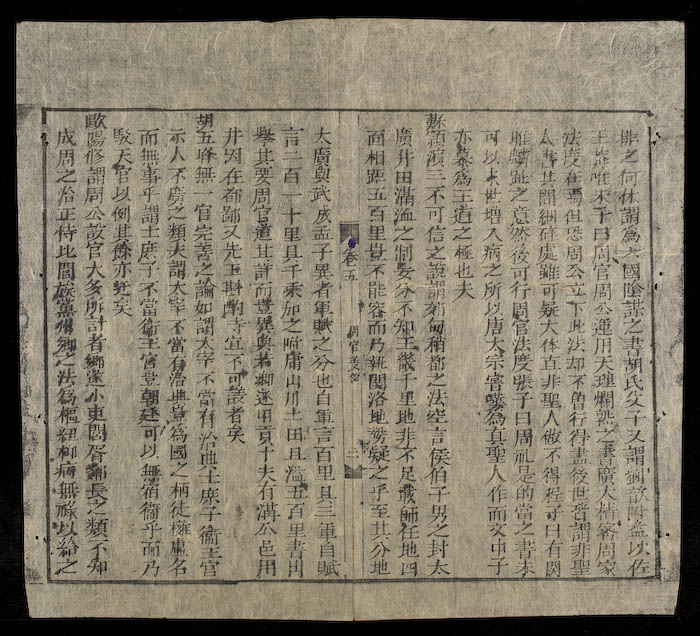 排之何休謂為六國陰謀之書胡氏父子又謂劉歆附益以佐
王莽唯朱子曰周官周公運用天理爛熟之書廣大精密周家
法度在焉但恐周公立下此法却不曾行得盡後世皆謂非聖
人書其間細碎處雖可疑大体直非聖人做不得程子曰有関
雎麟趾之意然後可行周官法度張子曰周礼是的當之書未
可以末世增入病之所以唐太宗嘗嘆為真聖人作而文中子
亦慕為王道之極也夫
蘇潁濱三不可信之說謂甸稍都之法空言侯伯子男之封太
廣井田溝洫之制妄分不知王畿千里地非不足載師任地四
面相距五百里豈不能容而乃執関洛地勢疑之乎至其分地
卷五
周官
二
太廣與武成孟子異者軍賦之分也自軍言百里具三軍自賦
言二百一十里具千乘加之附庸山川土田且溢五百里書出
舉其要周官道其詳而豈異與若鄉遂用貢十夫有溝公邑用
井因在都鄙又先王斟酌時宜不可議者矣
胡五峰無一官完善之論如謂太宰不當有治典士庶子衛王宮
示人不廣之類夫謂太宰不當有治典豈為國之柄徒擁虛名
而無事乎謂士庶子不當衛王宮豈朝廷可以無宿衛乎而乃
駁天官以例其餘亦迂矣
歐陽修謂周公設官大多所計者鄉遂小吏閭胥鄙長之類不知
成周之治正恃比閭族黨州鄉之法為樞紐抑病無祿以給之